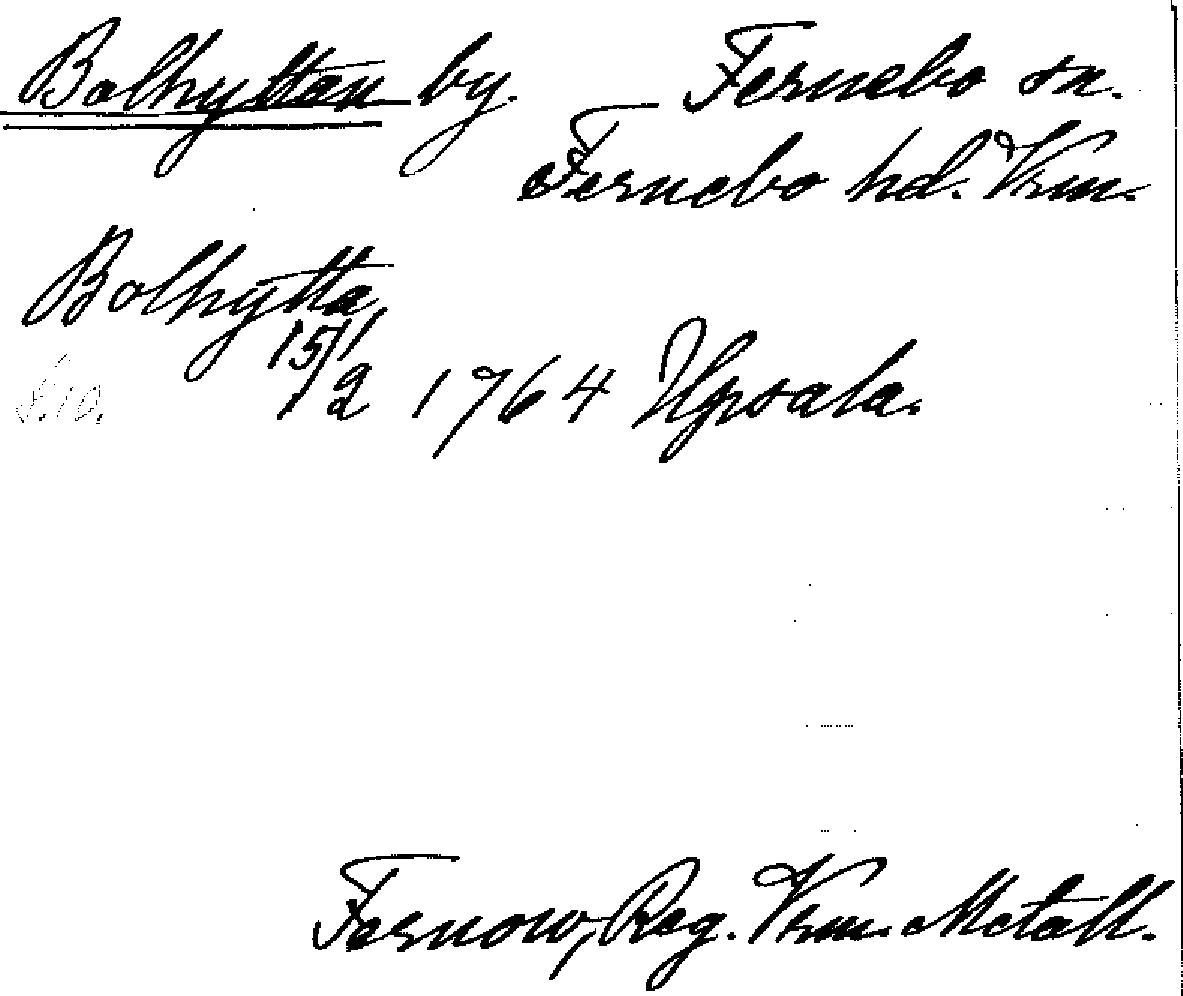 Bolhyttan by. Fernebo sn.
Fernebo hd. Vrm.
Bolhytta
15/2 1764 Upsala.
Fernow, Reg. Vrm. Metall.